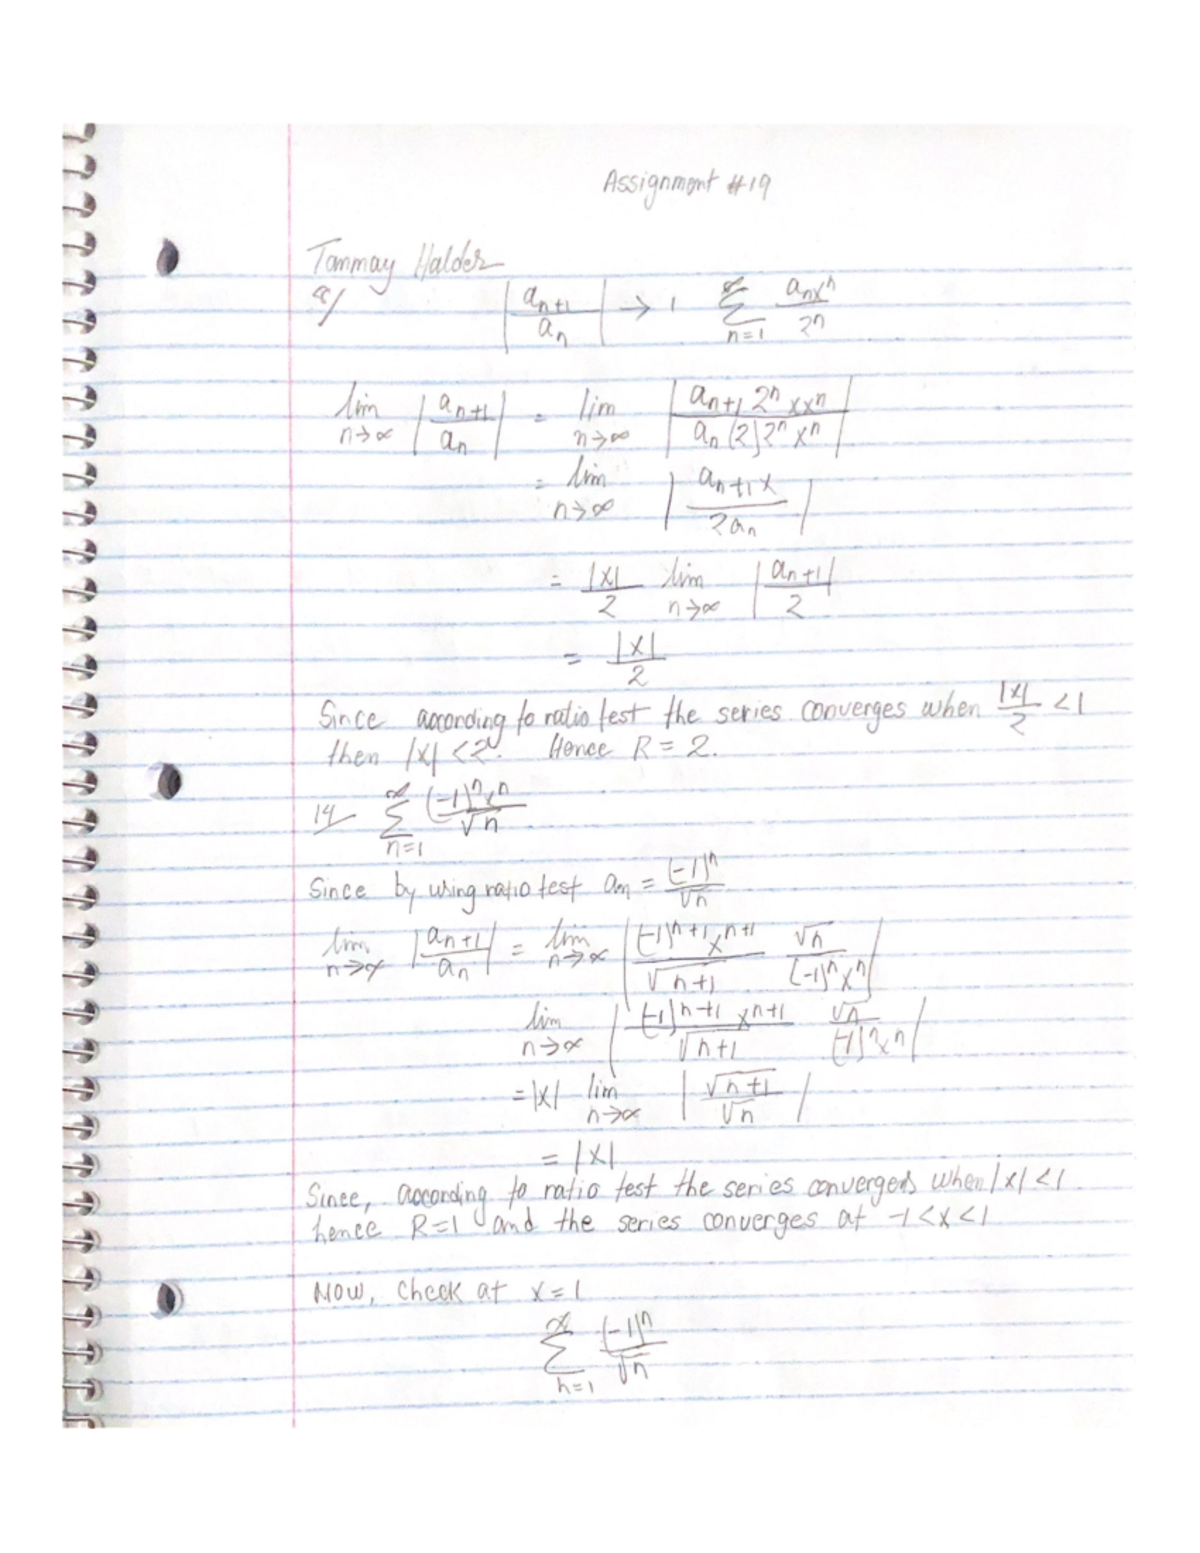 Assignment #19
Tanmay Halder
8/ |a_{n+1}/a_n| → 1 ∑_{n=1}^{∞} a_n x^n / 2^n
lim_{n→∞} |a_{n+1}/a_n| = lim_{n→∞} |a_{n+1} 2^n x x^n / a_n (2) 2^n x^n|
= lim_{n→∞} |a_{n+1} x / 2a_n|
= |x|/2 lim_{n→∞} |a_{n+1}/2|
= |x|/2
Since according to ratio test the series converges when |x|/2 < 1
then |x| < 2. Hence R = 2.
14/ ∑_{n=1}^{∞} (-1)^n x^n / √n
Since by using ratio test a_n = (-1)^n / √n
lim_{n→∞} |a_{n+1}/a_n| = lim_{n→∞} |(-1)^{n+1} x^{n+1} / √n+1 √n / (-1)^n x^n|
lim_{n→∞} |(-1)^{n+1} x^{n+1} / √n+1 √n / (-1)^n x^n|
= |x| lim_{n→∞} |√n+1 / √n|
= |x|
Since, according to ratio test the series converges when |x| < 1
hence R=1 and the series converges at -1 < x < 1
Now, check at x = 1
∑_{n=1}^{∞} (-1)^n / √n